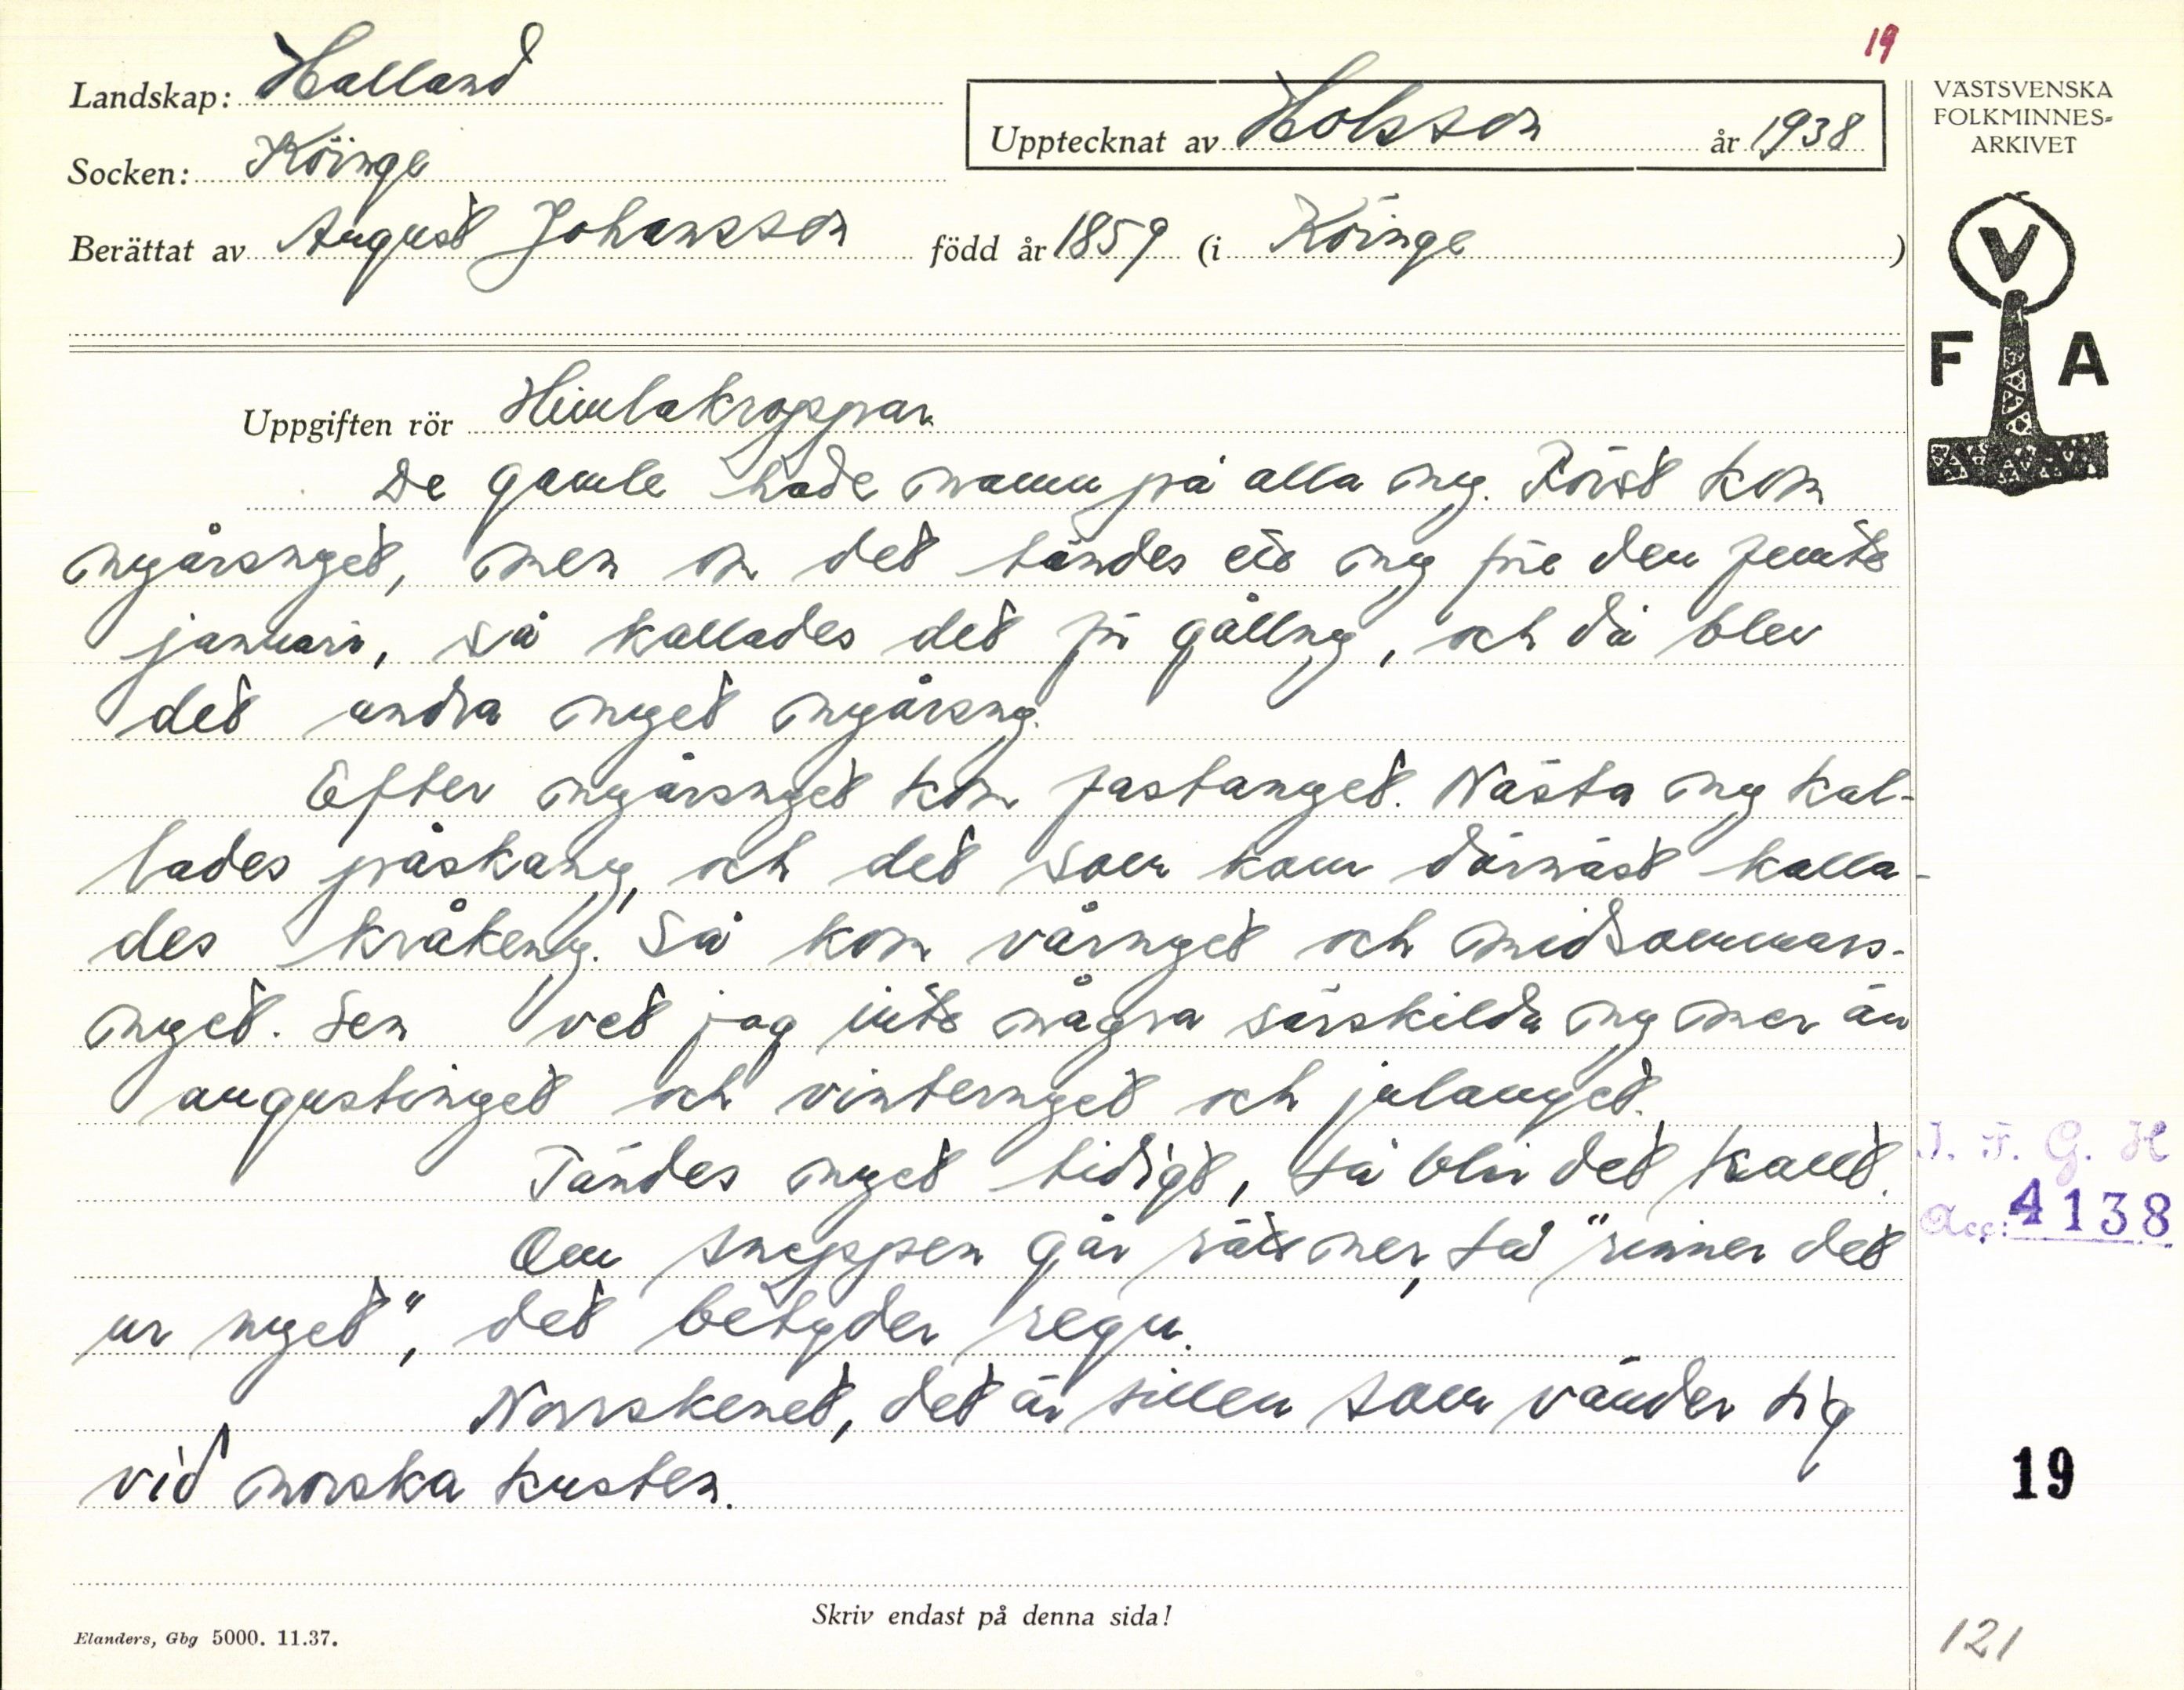 19
Landskap: Halland
Upptecknat av Holsson år 1938
Socken: Köinge
Berättat av August Johansson född år 1859 (i Köinge )
VÄSTSVENSKA
FOLKMINNES-
ARKIVET
V
F A
Uppgiften rör Himlakroppar
De gamle hade namn på alla ny. Först kom
nyårsnyet, men om det tändes ett ny före den femte
januari, så kallades det för gållny, och då blev
det andra nyet nyårsny.
Efter nyårsnyet kom fastanyet. Nästa ny kal-
lades påskany, och det som kom därnäst kalla-
des kråkeny. Så kom vårnyet och midsommars-
nyet. Sen vet jag inte några särskilda ny mer än
augustinyet och vinternyet och julanyet.
Tändes nyet tidigt, så blir det kallt.
Om sneppen går rätt ner, så "rinner det
ur nyet", det betyder regn.
Norrskenet, det är sillen som vänder sig
vid norska kusten.
I. F. G. H
Acc: 4138
19
Skriv endast på denna sida!
Elanders, Gbg 5000. 11.37.
121